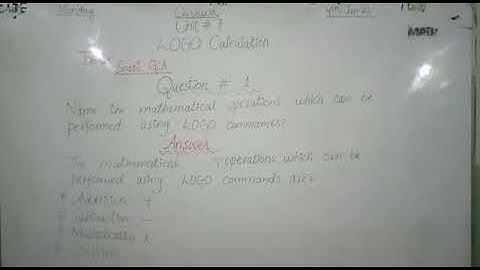 Monday
Classwork
Unit # 7
LOGO Calculation
Short Q/A
Question # 1
Name the mathematical operations which can be
performed using LOGO commands?
Answer
The mathematical operations which can be
performed using LOGO commands are:
Addition +
Subtraction −
Multiplication ×